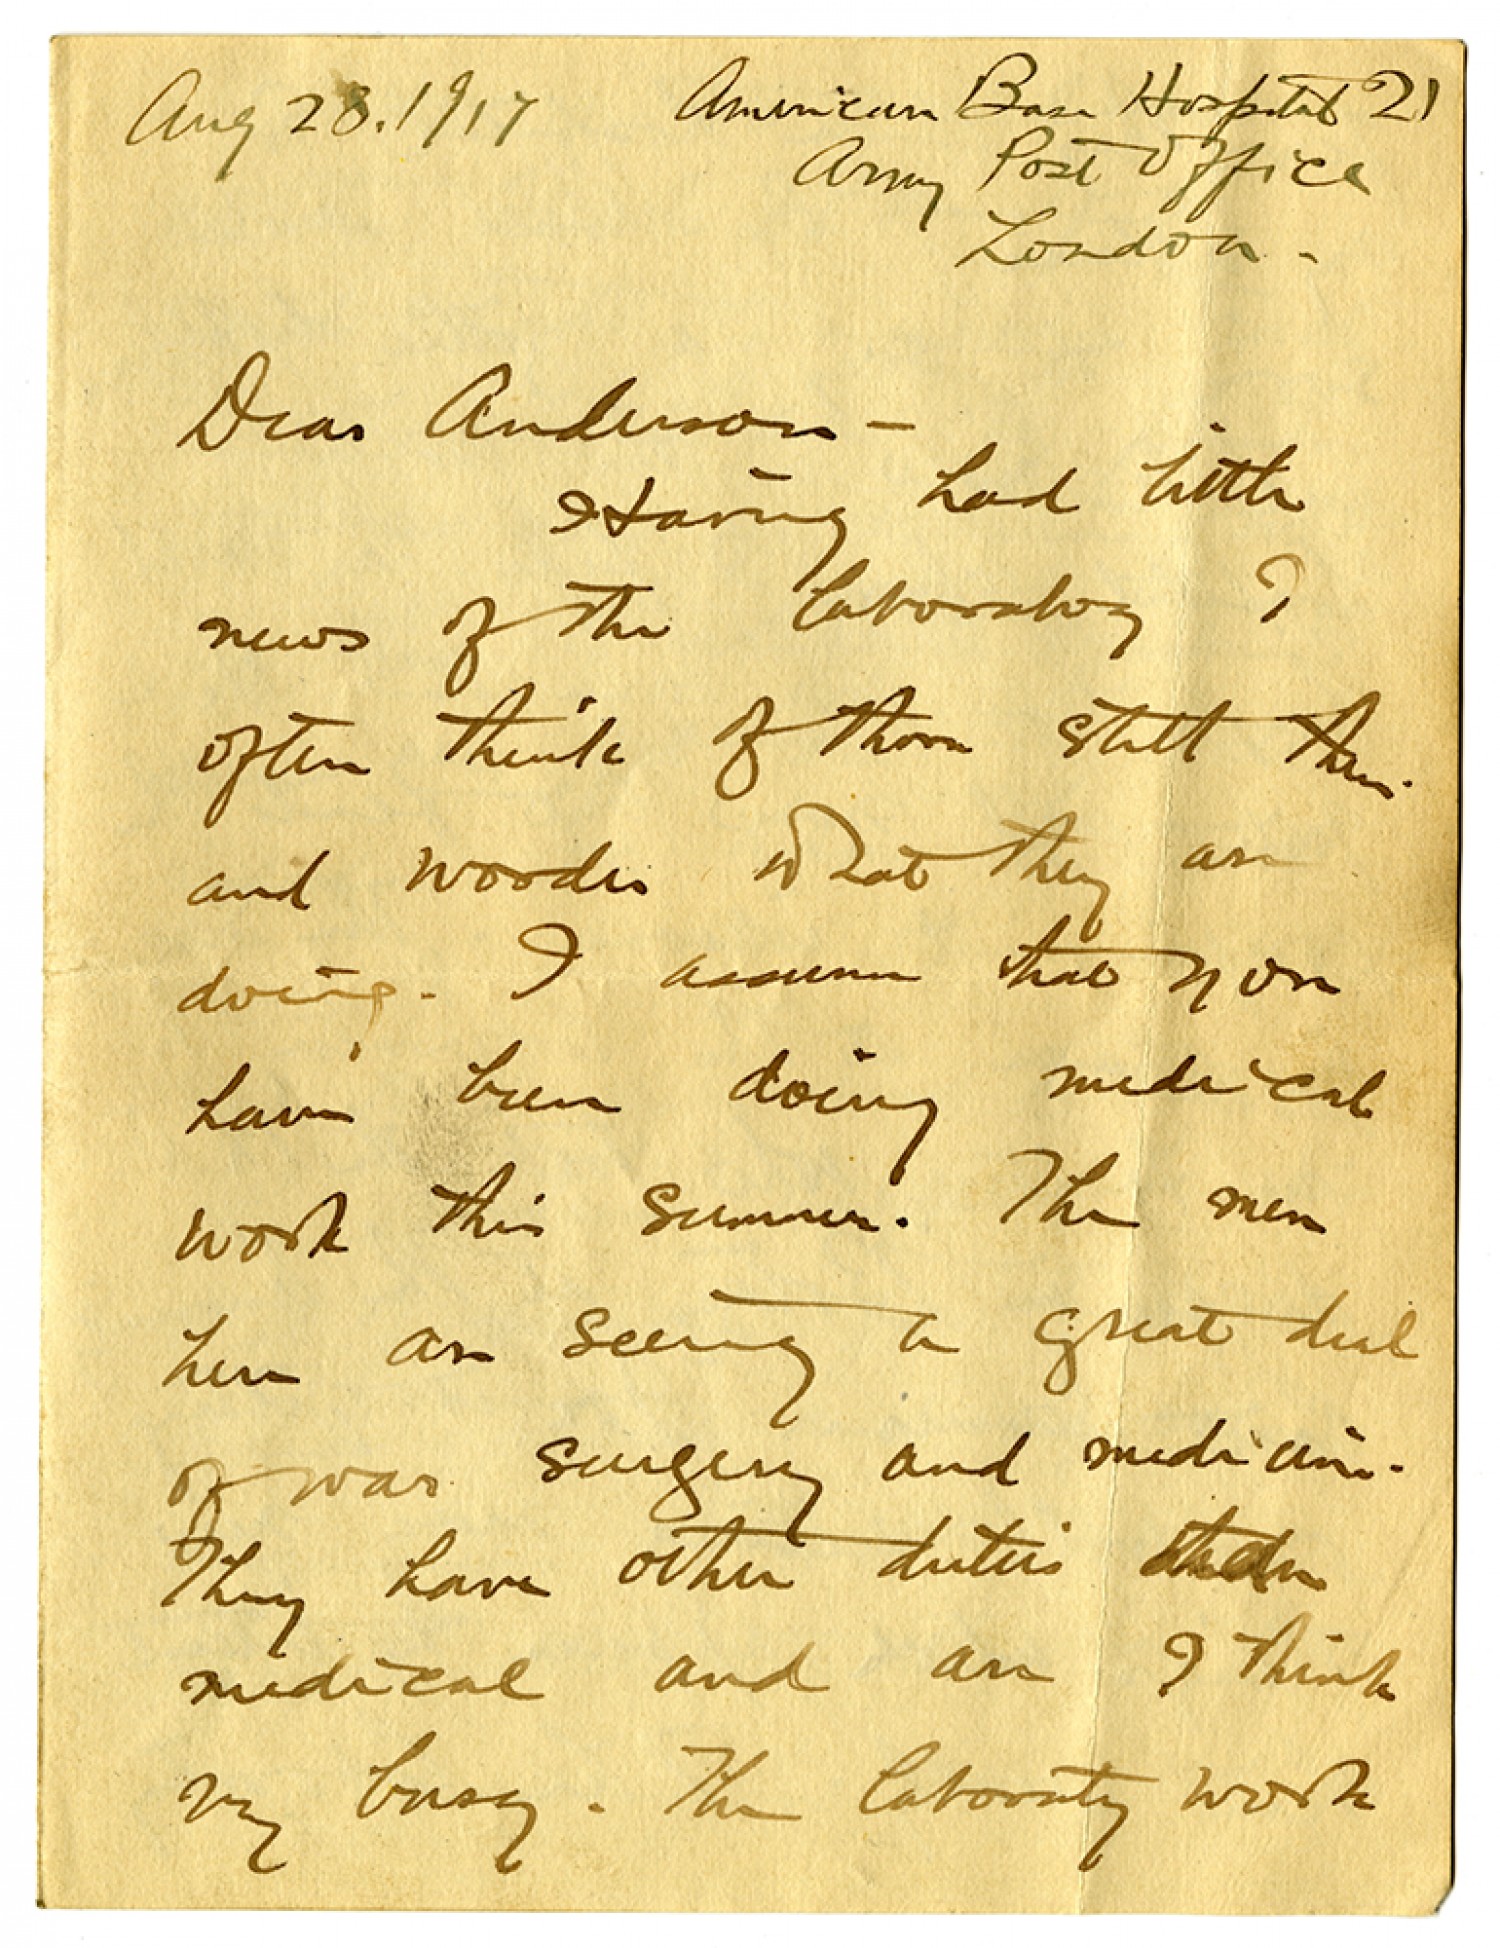 Aug 28. 1917
American Base Hospital 21
Army Post Office
London.
Dear Anderson —
Having had little
news of the laboratory I
often think of those still there
and wonder what they are
doing. I assume that you
have been doing medical
work this summer. The men
here are seeing a great deal
of war surgery and medicine.
They have other duties than
medical and are I think
very busy. The laboratory work